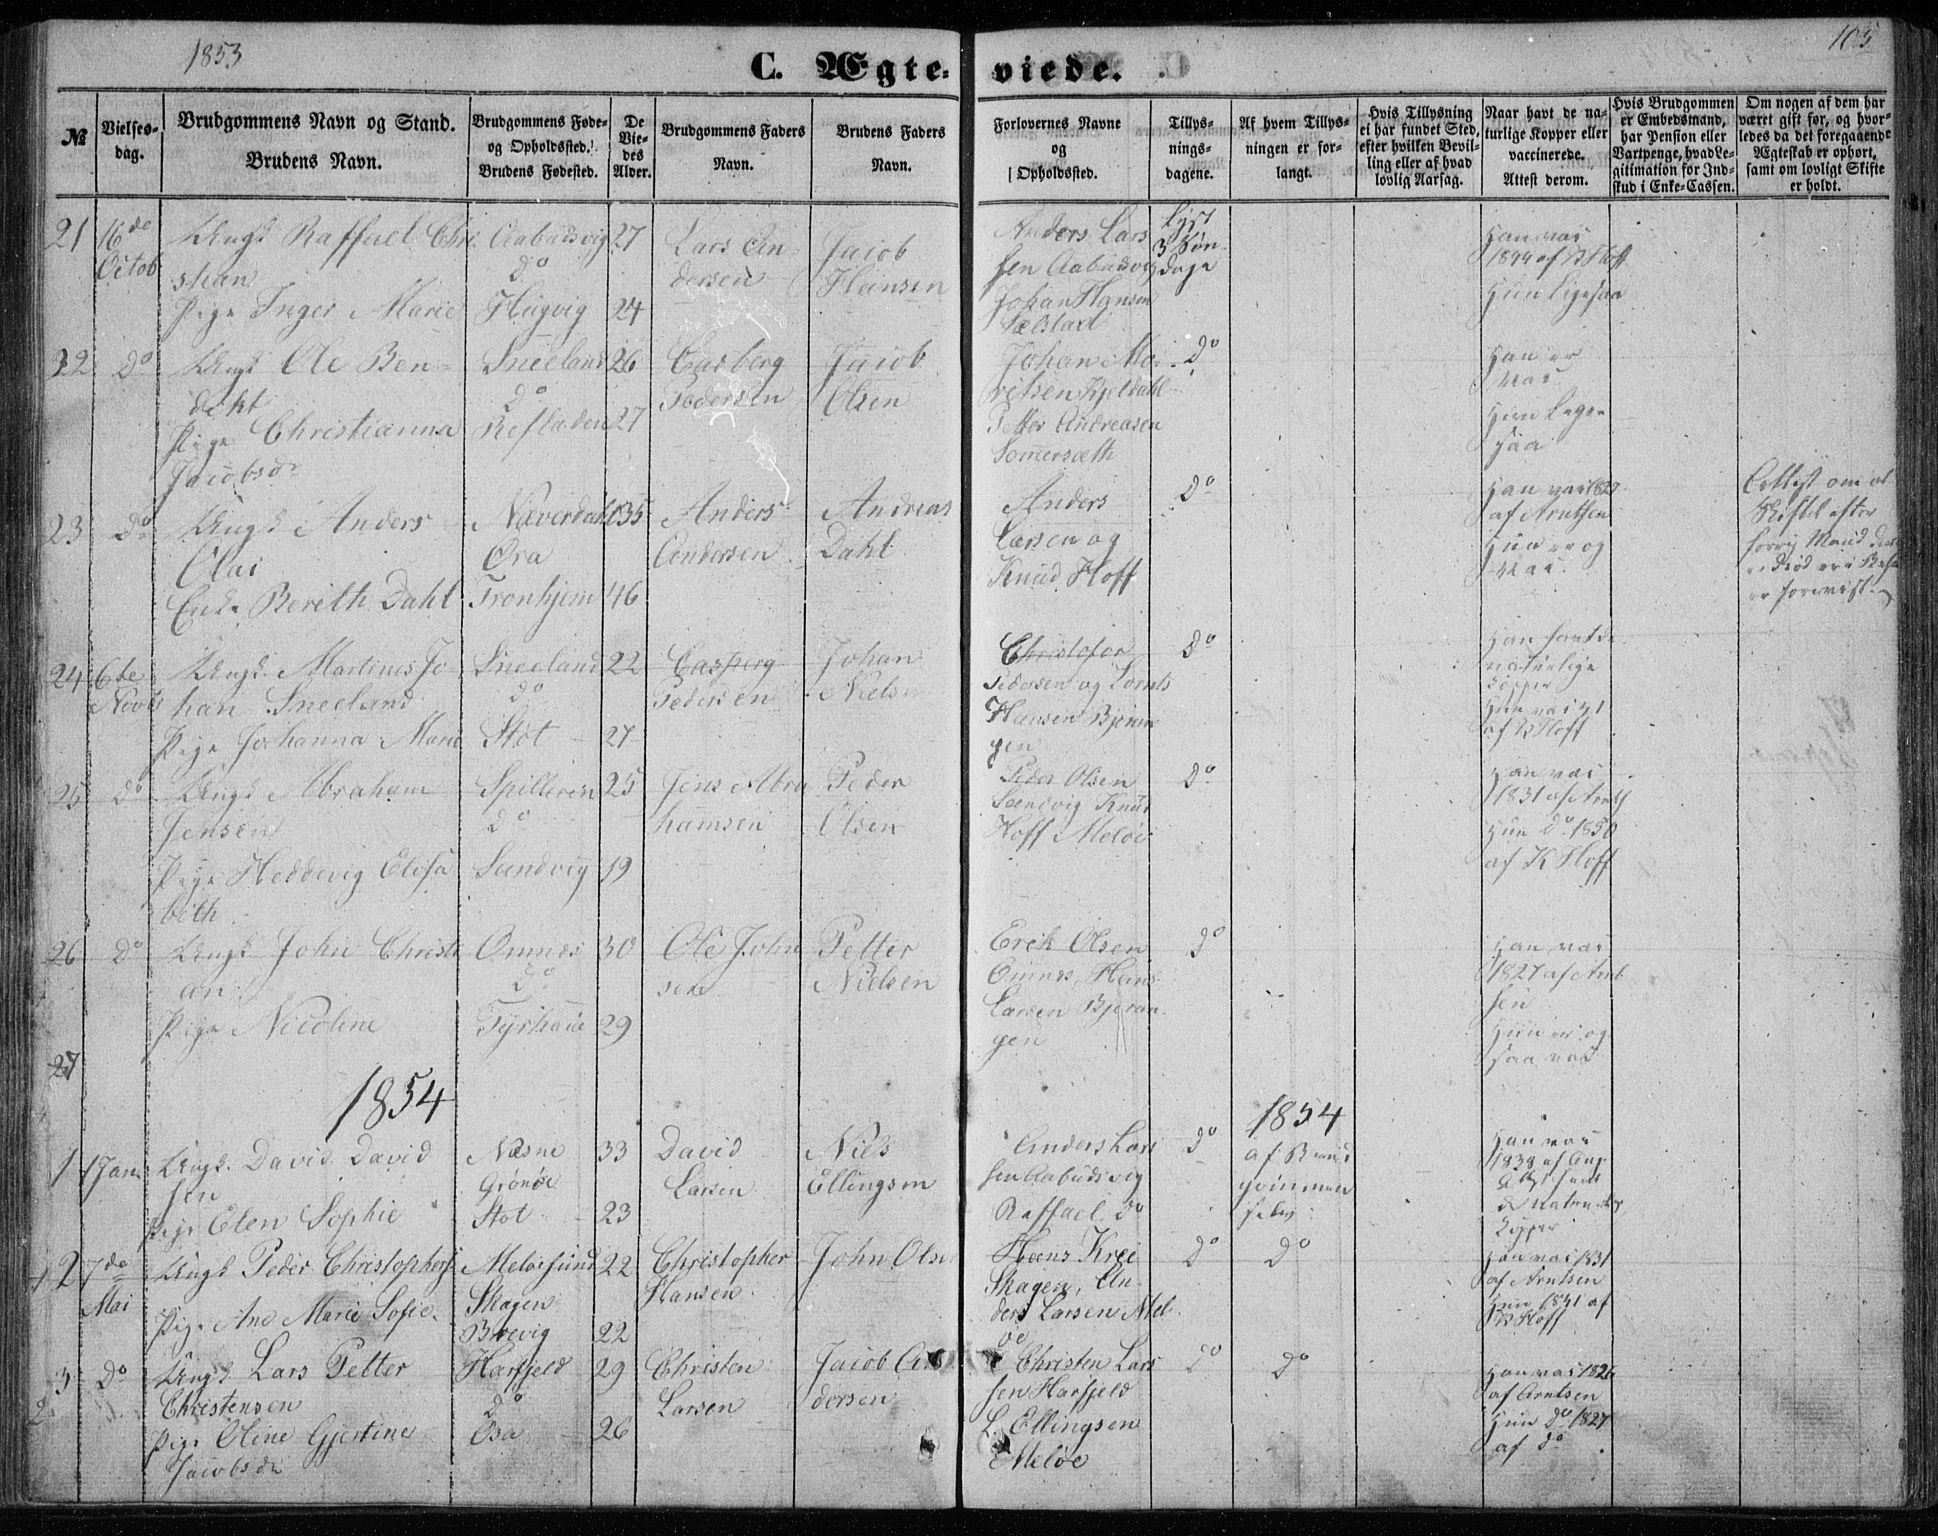 1853
C. Ægte-viede.
105
№
Vielses-
dag.
Brudgommens Navn og Stand.
Brudens Navn.
Brudgommens Føde-
og Opholdssted.
Brudens Fødested.
De
Vie-
des
Alder.
Brudgommens Faders
Navn.
Brudens Faders
Navn.
Forlovernes Navne
og
Opholdssted.
Tillys-
nings-
dagene.
Af hvem Tillys-
ningen er for-
langt.
Hvis Tillysning
ei har fundet Sted,
efter hvilken Bevil-
ling eller af hvad
lovlig Aarsag.
Naar havt de na-
turlige Kopper eller
vaccinerede.
Attest derom.
Hvis Brudgommen
er Embedsmand,
har Pension eller
Vartpenge, hvad Le-
gitimation for Ind-
skud i Enke-Cassen.
Om nogen af dem har
været gift før, og hvor-
ledes da det foregaaende
Ægteskab er ophørt,
samt om lovligt Skifte
er holdt.
21
16de
Octob
Ungk Raffael Chri
stian
Pige Inger Marie
Aabudsvig
do
Hugvig
27
24
Lars An
dersen
Jacob
Hansen
Anders Lars
sen Aabudsvig
Johan Hansen
Selstad
Lyst
3 Søn
dage
Han vac
1844 af B Hoff
Hun ligesaa
22
do
Ungk Ole Ben-
dikt
Pige Christianna
Jacobsdr
Sneeland
do
Refladen
26
27
Casberg
Pedersen
Jacob
Olsen
Johan Mo
ritsen Kjeldahl
Petter Andreasen
Sommersæth
do
Han er
vac.
Hun lige
saa
23
do
Ungk Anders
Olai
Enke Berith Dahl
Næverdahl
Øra
Tronhjem
35
46
Anders
Andersen
Andreas
Dahl
Anders
Larsen og
Knud Hoff
do
Han vac
af Arntsen
Hun er og
vac.
Attest om at
Skiftet efter
forrig Mand
er forevist
24
6te
Novb
Ungk Martinus Jo-
han Sneeland
Pige Johanna Marie
Sneeland
do
Støt
22
27
Casperg
Pedersen
Johan
Niels
Christofor
Pedersen og Lornts
Hansen Bjeran
gen
do
Han havt de
naturlige
Kopper
Hun vac
af B Hoff
25
do
Ungk Abraham
Jensen
Pige Heddevig Elisa
beth
Spilderen
do
Sandvig
25
19
Jens Abra
hamsen
Peder
Olsen
Peder Olsen
Sandvig Knud
Hoff Meløe
do
Han vac
1831 af Arnts
Hun do 1850
af K Hoff
26
do
Ungk John Christi
an
Pige Nicoline
Omnes
do
Tyrhaue
30
29
Ole John
sen
Petter
Nielsen
Erik Olsen
Omnes, Hans
Larsen Bjeran
gen
do
Han vac
1827 af Arnt
sen
Hun er og
saa vac
27
1854
1854
1
1 Jan
Ungk. David David
sen
Pige Elen Sophie
Næsne
Grønøe
Støt
33
23
David
Larsen
Niels
Ellingsen
Anders Lars
sen Aabudsvig
Raffael do
do
af Brud
gommen
selv
Han vac
1838 af
de naturlig
Kopper
2
7de
Mai
Ungk Peder Christophers
Pige Ane Marie Sofie
Meløesund
Skagen
Brevig
22
22
Christopher
Hansen
John Olsen
Hans Krei
Skagen, An
ders Larsen Mel
øe
do
do
Han vac 1831
af Arntsen
Hun 1841 af
B Hoff
3
2
do
Ungk Lars Petter
Christensen
Pige Oline Gjertine
Jacobsdr
Harfjeld
do
Osa
29
26
Christen
Larsen
Jacob An
dersen
Christen Lars
sen Harfjeld
L. Ellingsen
Meløe
do
do
Han vac 1826
af Arntsen
Hun do 1827
af do